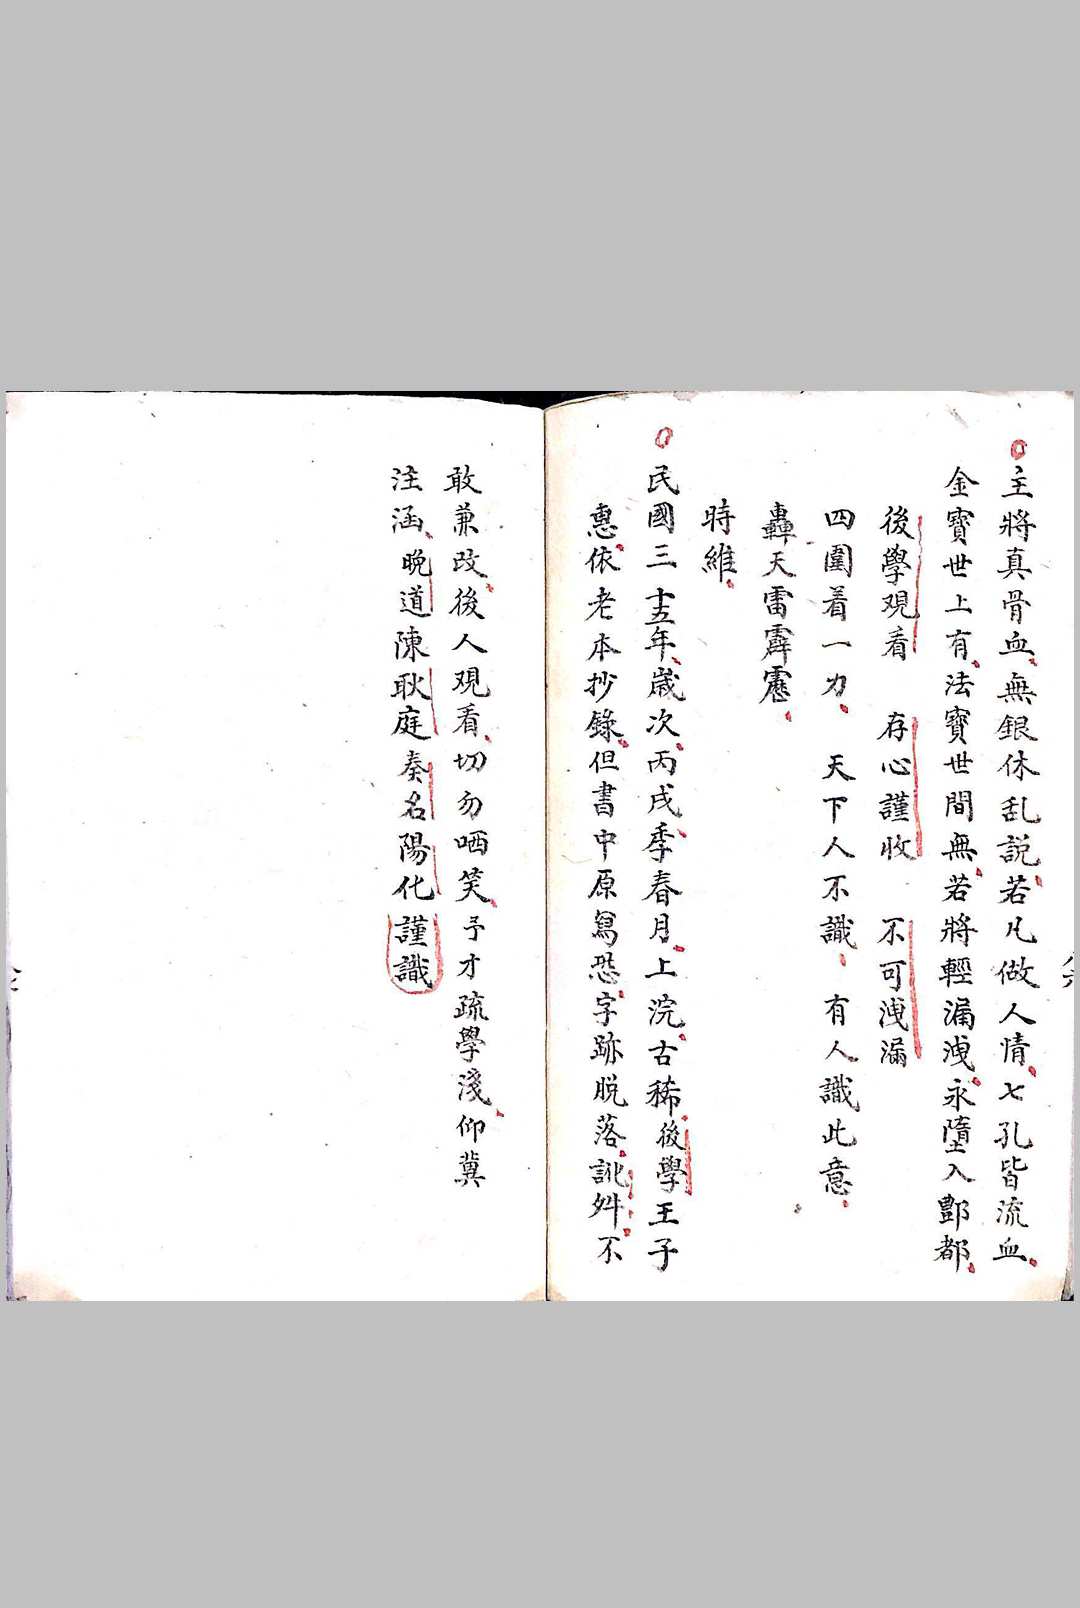 主將真骨血無銀休乱説若凡做人情七孔皆流血
金寶世上有法寶世間無若將輕漏洩永墮入酆都
後學观看 存心謹收 不可洩漏
四圍着一力 天下人不識 有人識此意
轟天雷霹靂
時維
民國三十五年歲次丙戌季春月上浣古稀後學王子
惠依老本抄錄但書中原寫恐字跡脱落訛舛不
敢兼改後人观看切勿哂笑予才疏學淺仰冀
注涵晚道陳耿庭奏名陽化謹識